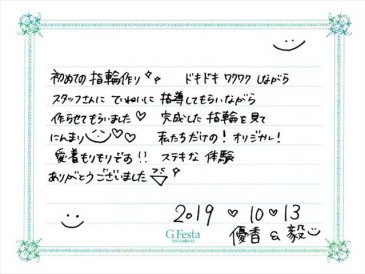 初めての指輪作り ドキドキ ワクワク しながら
スタッフさんに ていねいに 指導してもらいながら
作らせてもらいました♡ 完成した 指輪を見て
にんまり♡♡ 私たちだけの! オリジナル!
愛着もりもりです!! ステキな 体験
ありがとうございました
2019 ♡ 10 ♡ 13
G.Festa
優香 & 毅